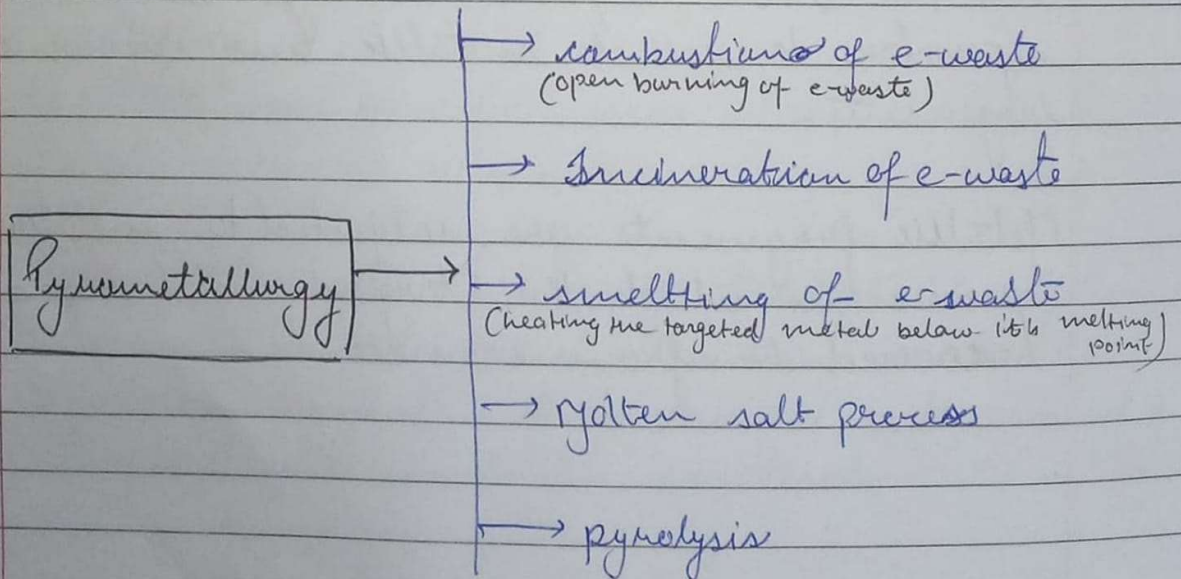 combustion of e-waste
(open burning of e-waste)
Incineration of e-waste
Pyrometallurgy
smeltting of e-waste
(heating the targeted metal below it's melting
point)
Molten salt process
pyrolysis